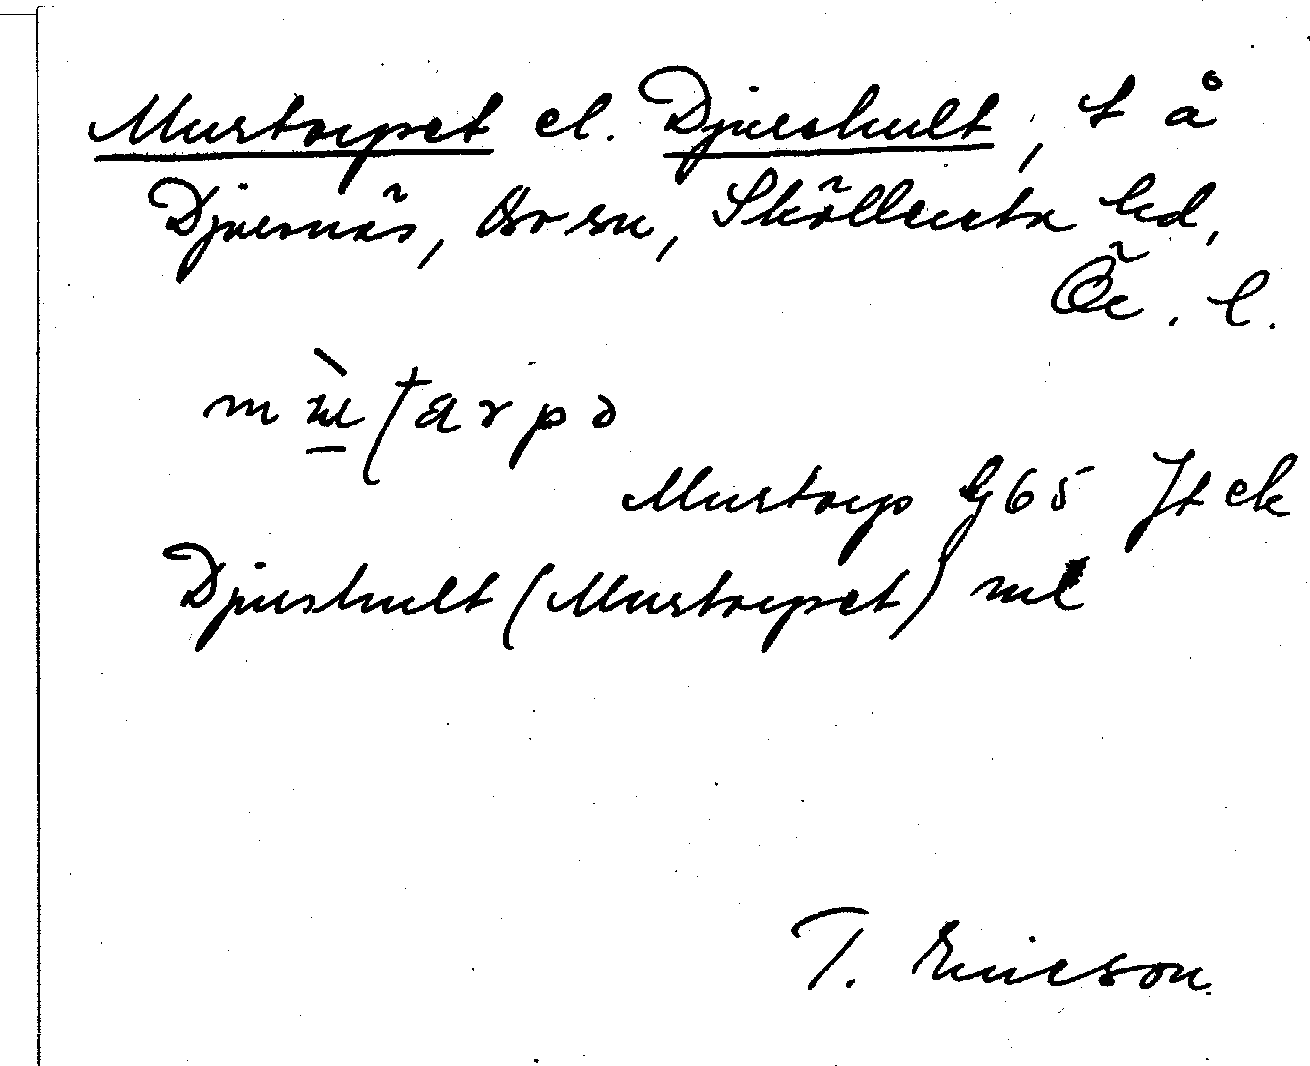 Murtorpet el. Djurshult, t å
Djursnäs, Ör sn, Skällerta hd,
Ör. l.
Murtorp G65 Jt ek
Djurshult (Murtorpet) ml
T. Ericson